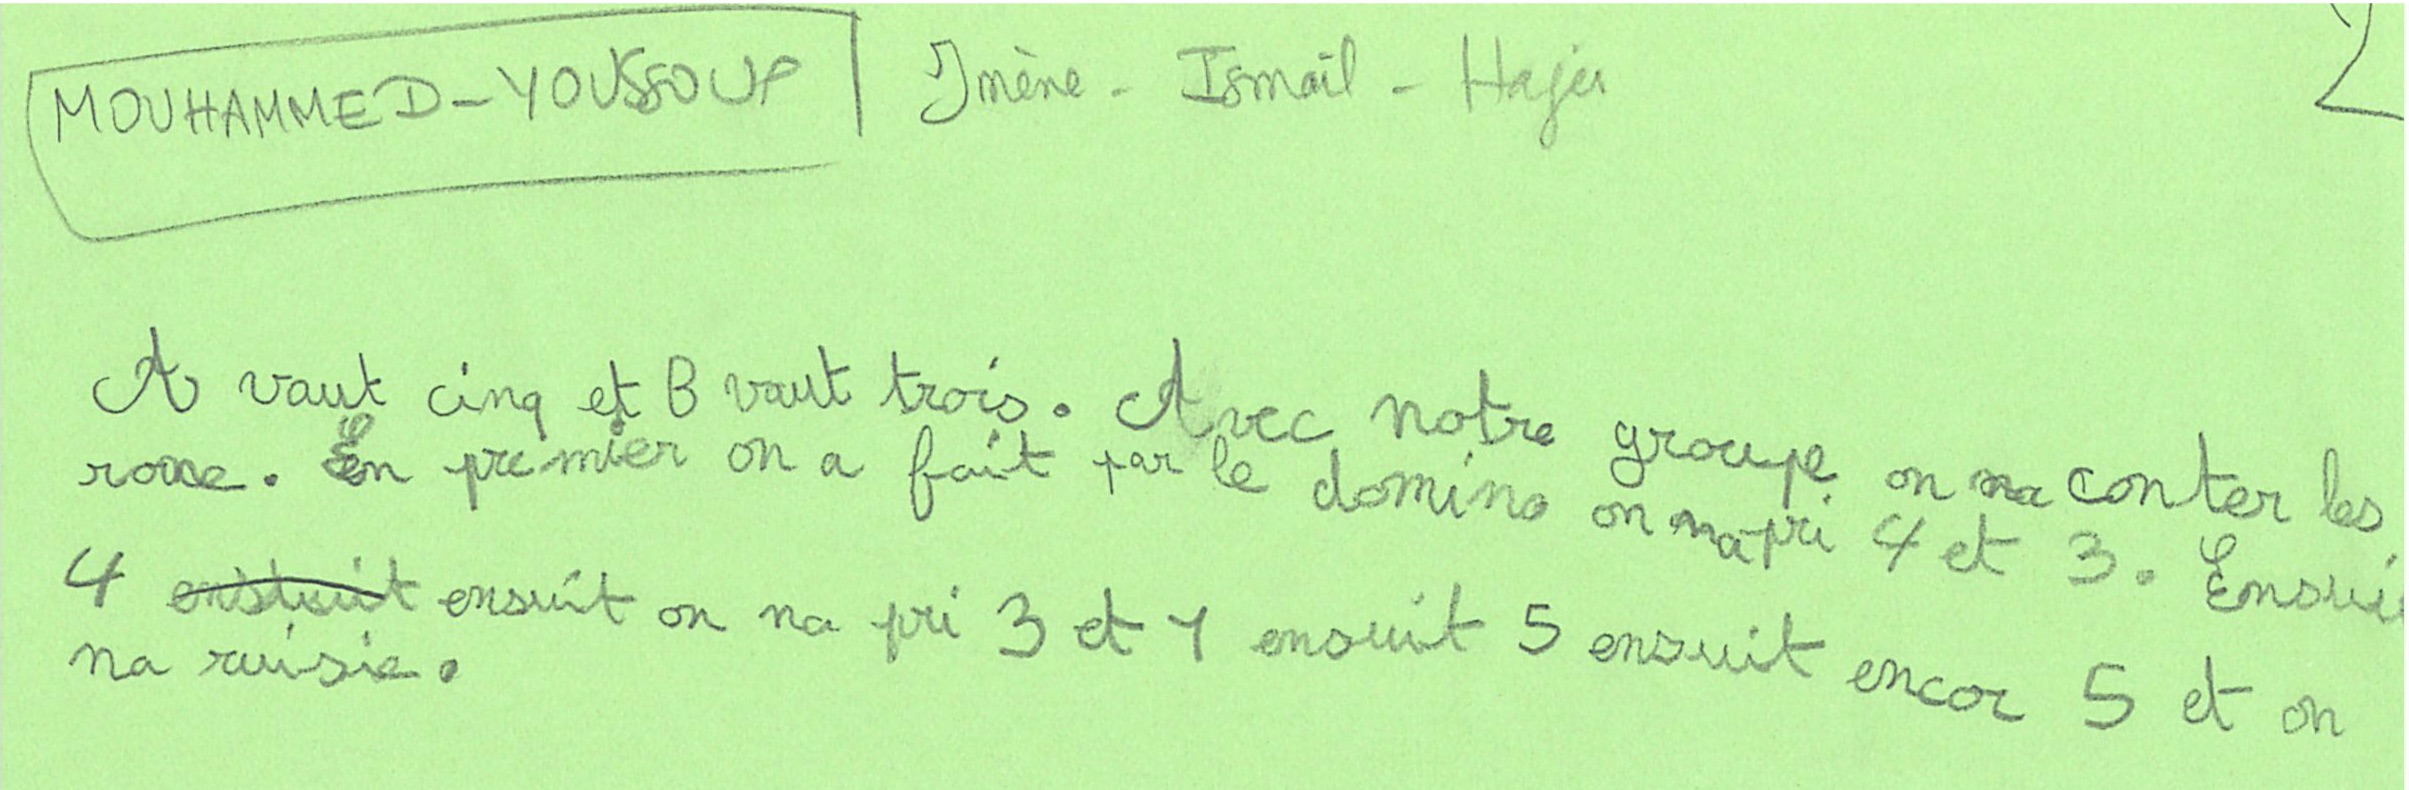 MOUHAMMED-YOUSSOUF Imène - Ismaïl - Hajer
A vaut cinq et B vaut trois. Avec notre groupe on na conter les
roxe. En premier on a fait par le domino on na pri 4 et 3. Ensui
4 ensuit ensuit on na pri 3 et 1 ensuit 5 ensuit encor 5 et on
na réusie.